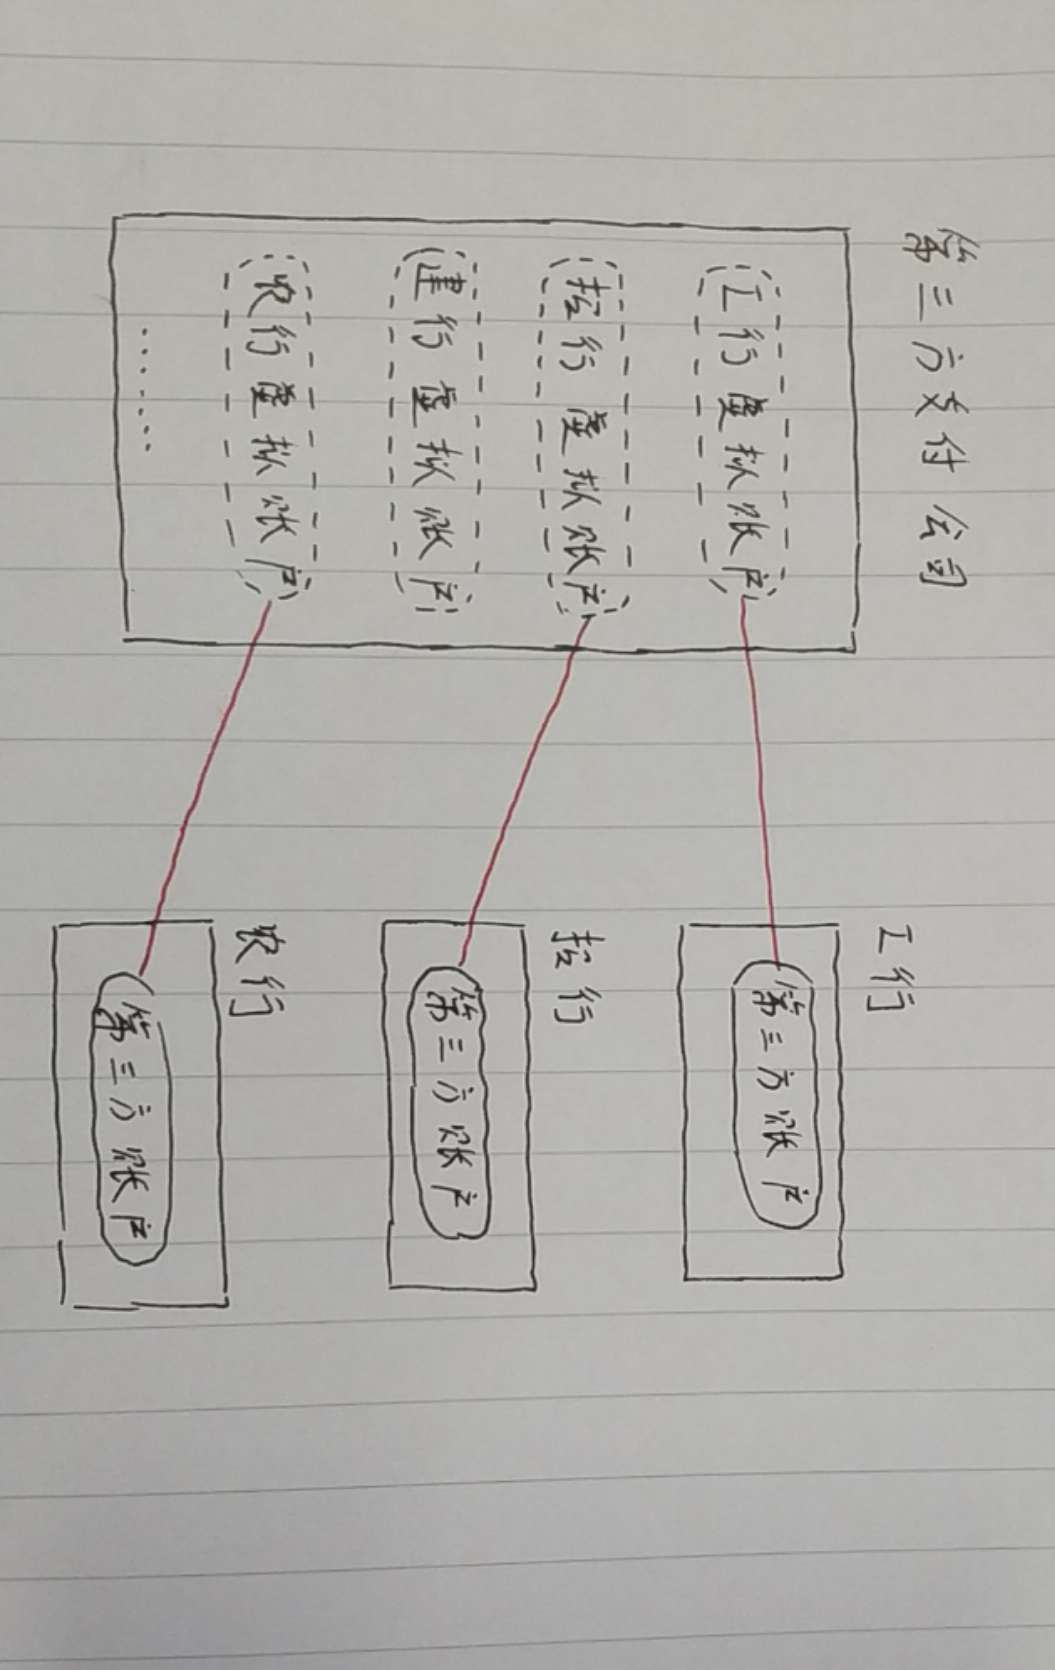 第三方支付公司
工行虚拟账户
招行虚拟账户
建行虚拟账户
农行虚拟账户
.......
工行
第三方账户
招行
第三方账户
农行
第三方账户